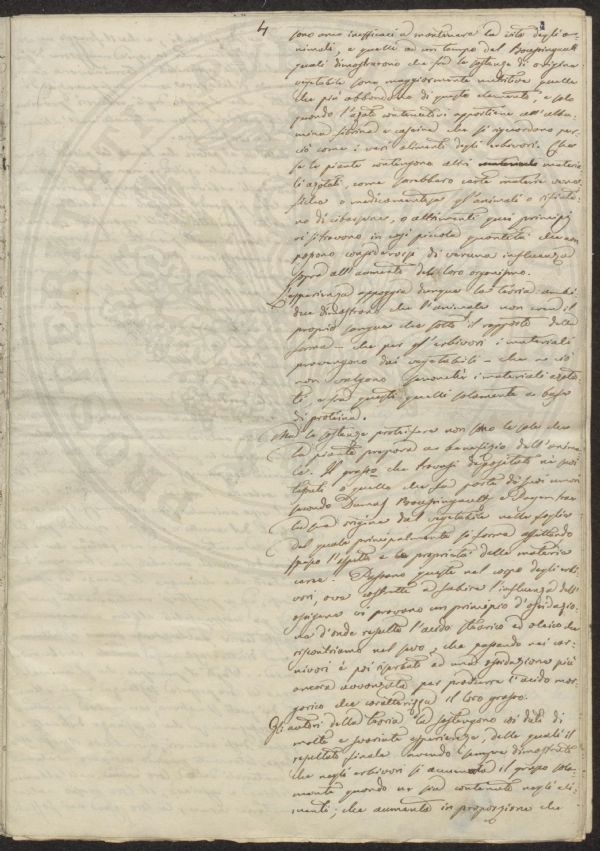 4
sono ora inefficaci a mantenere la vita degli a-
nimali, e quelli ad un tempo del Boussingault
quali dimostrarono che fra le sostanze di origine
vegetabile sono maggiormente nutritive quelle
che più abbondano di questo elemento, e solo
quando l'azoto contenutovi appartiene all'albu-
mina fibrina e caseina che si riguardono per-
ciò come i veri alimenti degli erbivori. Che
se le piante contengono altri materia-
li azotati, come sarebbero certe materie vene-
fiche o medicamentose gl'animali o rifiuta-
no di cibarsene, o altrimenti quei principj
vi si trovono in così piccola quantità che non
possono considerarsi di veruna influenza
sopra all'aumento del loro organismo.
L'esperienza appoggia dunque la teoria ambi
due dimostrano che l'animale non crea il
proprio sangue che sotto il rapporto della
forma — che per gl'erbivori i materiali
provengono dai vegetabili — che a ciò
non valgono senonchè i materiali azota-
ti, e fra questi quelli solamente a base
di proteina.
Ma le sostanze proteiche non sono le sole che
la pianta prepara a benefizio dell'anima-
le. Il grasso che trovasi depositato ne' suoi
tessuti o quello che fa parte de' suoi umori
secondo Dumas Boussingault e Payen trae
la sua origine dal vegetabile nelle foglie
del quale principalmente si forma affettando
spesso l'aspetto e le proprietà della materia
cerea. Passano queste nel corpo degli erbi-
vori, ove costrette a subire l'influenza dell'
ossigeno vi provano un principio d'ossidazio-
ne d'onde risulta l'acido stearico ed oleico che
riscontriamo nel sevo, che passando nei car-
nivori è poi riserbato ad una ossidazione più
ancora avanzata per produrre l'acido mar-
garico che caratterizza il loro grasso.
Gli autori della teoria la sostengono coi dati di
molte e svariate esperienze, delle quali il
risultato finale avendo sempre dimostrato
che negli erbivori si aumenta il grasso sola-
mente quando ve sia contenuto negli ali-
menti; che aumenta in proporzione che